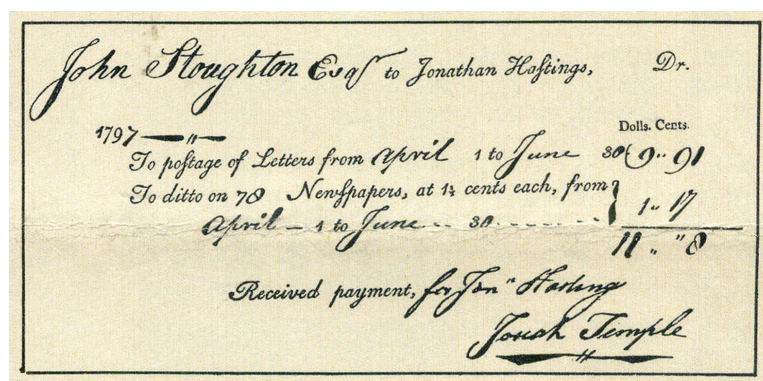 John Stoughton Esqr to Jonathan Haſtings, Dr.
1797 — " —
Dolls. Cents.
To poſtage of Letters from April 1 to June 30 { 9 " 91
To ditto on 78 Newſpapers, at 1½ cents each, from }
1 " 17
April — 1 to June -- 30 - - - - - -
11 " " 8
Received payment, for Jonn Hasting
Josiah Temple